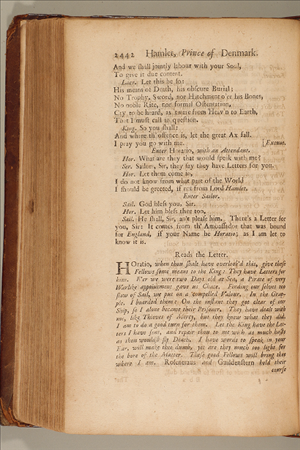 2442 Hamlet, Prince of Denmark.
And we shall jointly labour with your Soul,
To give it due content.
Laer. Let this be so:
His means of Death, his obscure Burial;
No Trophy, Sword, nor Hatchment o'er his Bones,
No noble Rite, nor formal Ostentation,
Cry to be heard, as 'twere from Heav'n to Earth,
That I must call in question.
King. So you shall:
And where th' offence is, let the great Ax fall.
I pray you go with me. [Exeunt.
Enter Horatio, with an Attendant.
Hor. What are they that would speak with me?
Ser. Sailors, Sir, they say they have Letters for you.
Hor. Let them come in,
I do not know from what part of the World
I should be greeted, if not from Lord Hamlet.
Enter Sailor.
Sail. God bless you, Sir.
Hor. Let him bless thee too.
Sail. He shall, Sir, an't please him. There's a Letter for
you, Sir: It comes from th' Ambassador that was bound
for England, if your Name be Horatio; as I am let to
know it is.
Reads the Letter.
HOratio, when thou shalt have overlook'd this, give these
Fellows some means to the King: They have Letters for
him. E'er we were two Days old at Sea, a Pirate of very
Warlike appointment gave us Chace. Finding our selves too
slow of Sail, we put on a compelled Valour. In the Grap-
ple, I boarded them: On the instant they got clear of our
Ship, so I alone became their Prisoner. They have dealt with
me, like Thieves of Mercy, but they knew what they did.
I am to do a good turn for them. Let the King have the Let-
ters I have sent, and repair thou to me with as much haste
as thou wouldst fly Death. I have words to speak in your
Ear, will make thee dumb, yet are they much too light for
the bore of the Matter. These good Fellows will bring thee
where I am. Rosencraus and Guildenstern hold their
course